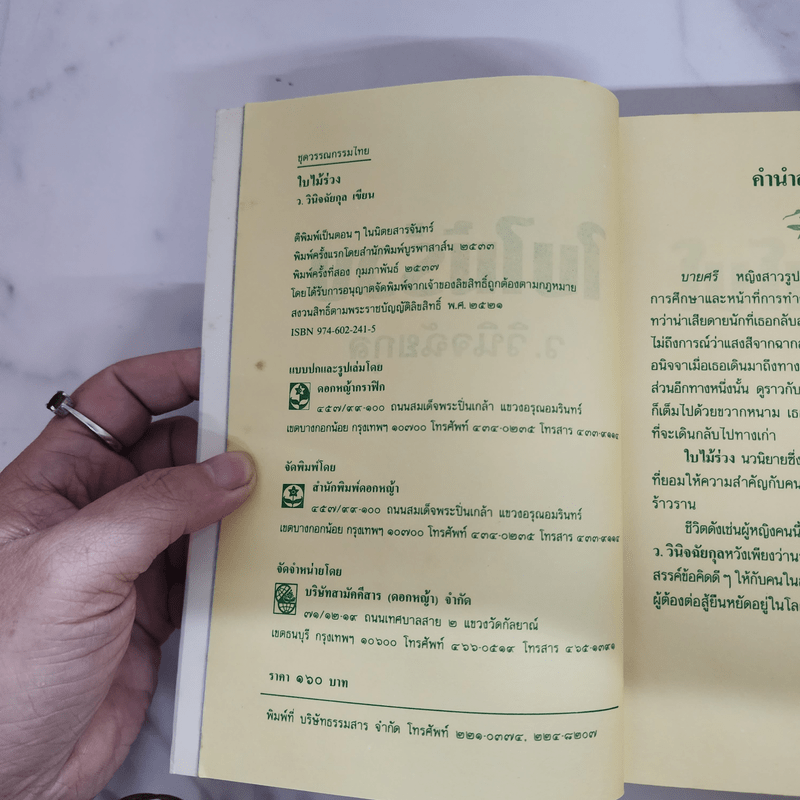 ชุดวรรณกรรมไทย
ใบไม้ร่วง
ว. วินิจฉัยกุล เขียน
ตีพิมพ์เป็นตอน ๆ ในนิตยสารจันทร์
พิมพ์ครั้งแรกโดยสำนักพิมพ์บูรพาสาส์น ๒๕๓๓
พิมพ์ครั้งที่สอง กุมภาพันธ์ ๒๕๓๗
โดยได้รับการอนุญาตจัดพิมพ์จากเจ้าของลิขสิทธิ์ถูกต้องตามกฎหมาย
สงวนสิทธิ์ตามพระราชบัญญัติลิขสิทธิ์ พ.ศ. ๒๕๒๑
ISBN 974-602-241-5
แบบปกและรูปเล่มโดย
ดอกหญ้ากราฟิก
๔๕๗/๙๙-๑๐๐ ถนนสมเด็จพระปิ่นเกล้า แขวงอรุณอมรินทร์
เขตบางกอกน้อย กรุงเทพฯ ๑๐๗๐๐ โทรศัพท์ ๔๓๔-๐๒๓๕ โทรสาร ๔๓๓-๙๑๑๙
จัดพิมพ์โดย
สำนักพิมพ์ดอกหญ้า
๔๕๗/๙๙-๑๐๐ ถนนสมเด็จพระปิ่นเกล้า แขวงอรุณอมรินทร์
เขตบางกอกน้อย กรุงเทพฯ ๑๐๗๐๐ โทรศัพท์ ๔๓๔-๐๒๓๕ โทรสาร ๔๓๓-๙๑๑๙
จัดจำหน่ายโดย
บริษัทสามัคคีสาร (ดอกหญ้า) จำกัด
๗๑/๑๒-๑๙ ถนนเทศบาลสาย ๒ แขวงวัดกัลยาณ์
เขตธนบุรี กรุงเทพฯ ๑๐๖๐๐ โทรศัพท์ ๔๖๖-๐๕๑๙ โทรสาร ๔๖๕-๑๓๙๑
ราคา ๑๖๐ บาท
พิมพ์ที่ บริษัทธรรมสาร จำกัด โทรศัพท์ ๒๒๑-๐๓๗๔, ๒๒๔-๘๒๐๗
คำนำ
บายศรี หญิงสาวรูป
การศึกษาและหน้าที่การทำ
ทว่าน่าเสียดายนักที่เธอกลับ
ไม่ถึงการณ์ว่าแสงสีจากฉาก
อนิจจาเมื่อเธอเดินมาถึงทาง
ส่วนอีกทางหนึ่งนั้น ดูราวกับ
ก็เต็มไปด้วยขวากหนาม เธอ
ที่จะเดินกลับไปทางเก่า
ใบไม้ร่วง นวนิยายซึ่ง
ที่ยอมให้ความสำคัญกับคน
ร้าวราน
ชีวิตดังเช่นผู้หญิงคนนี้
ว. วินิจฉัยกุลหวังเพียงว่า
สรรค์ข้อคิดดี ๆ ให้กับคนใน
ผู้ต้องต่อสู้ยืนหยัดอยู่ในโล